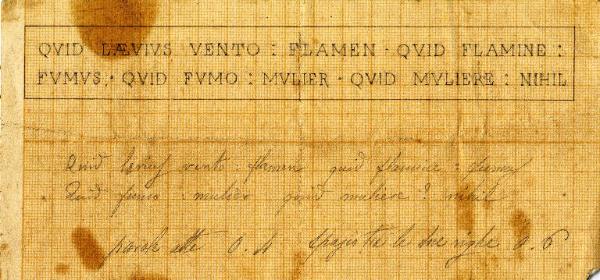 QVID LÆVIVS VENTO : FLAMEN · QVID FLAMINE :
FVMVS, · QVID FVMO : MVLIER · QVID MVLIERE : NIHIL
Quid vento : flamen quid flamine :
Quid fumo : mulier quid muliere ? nihil
parole alte 0.4 tra le due righe 0.6